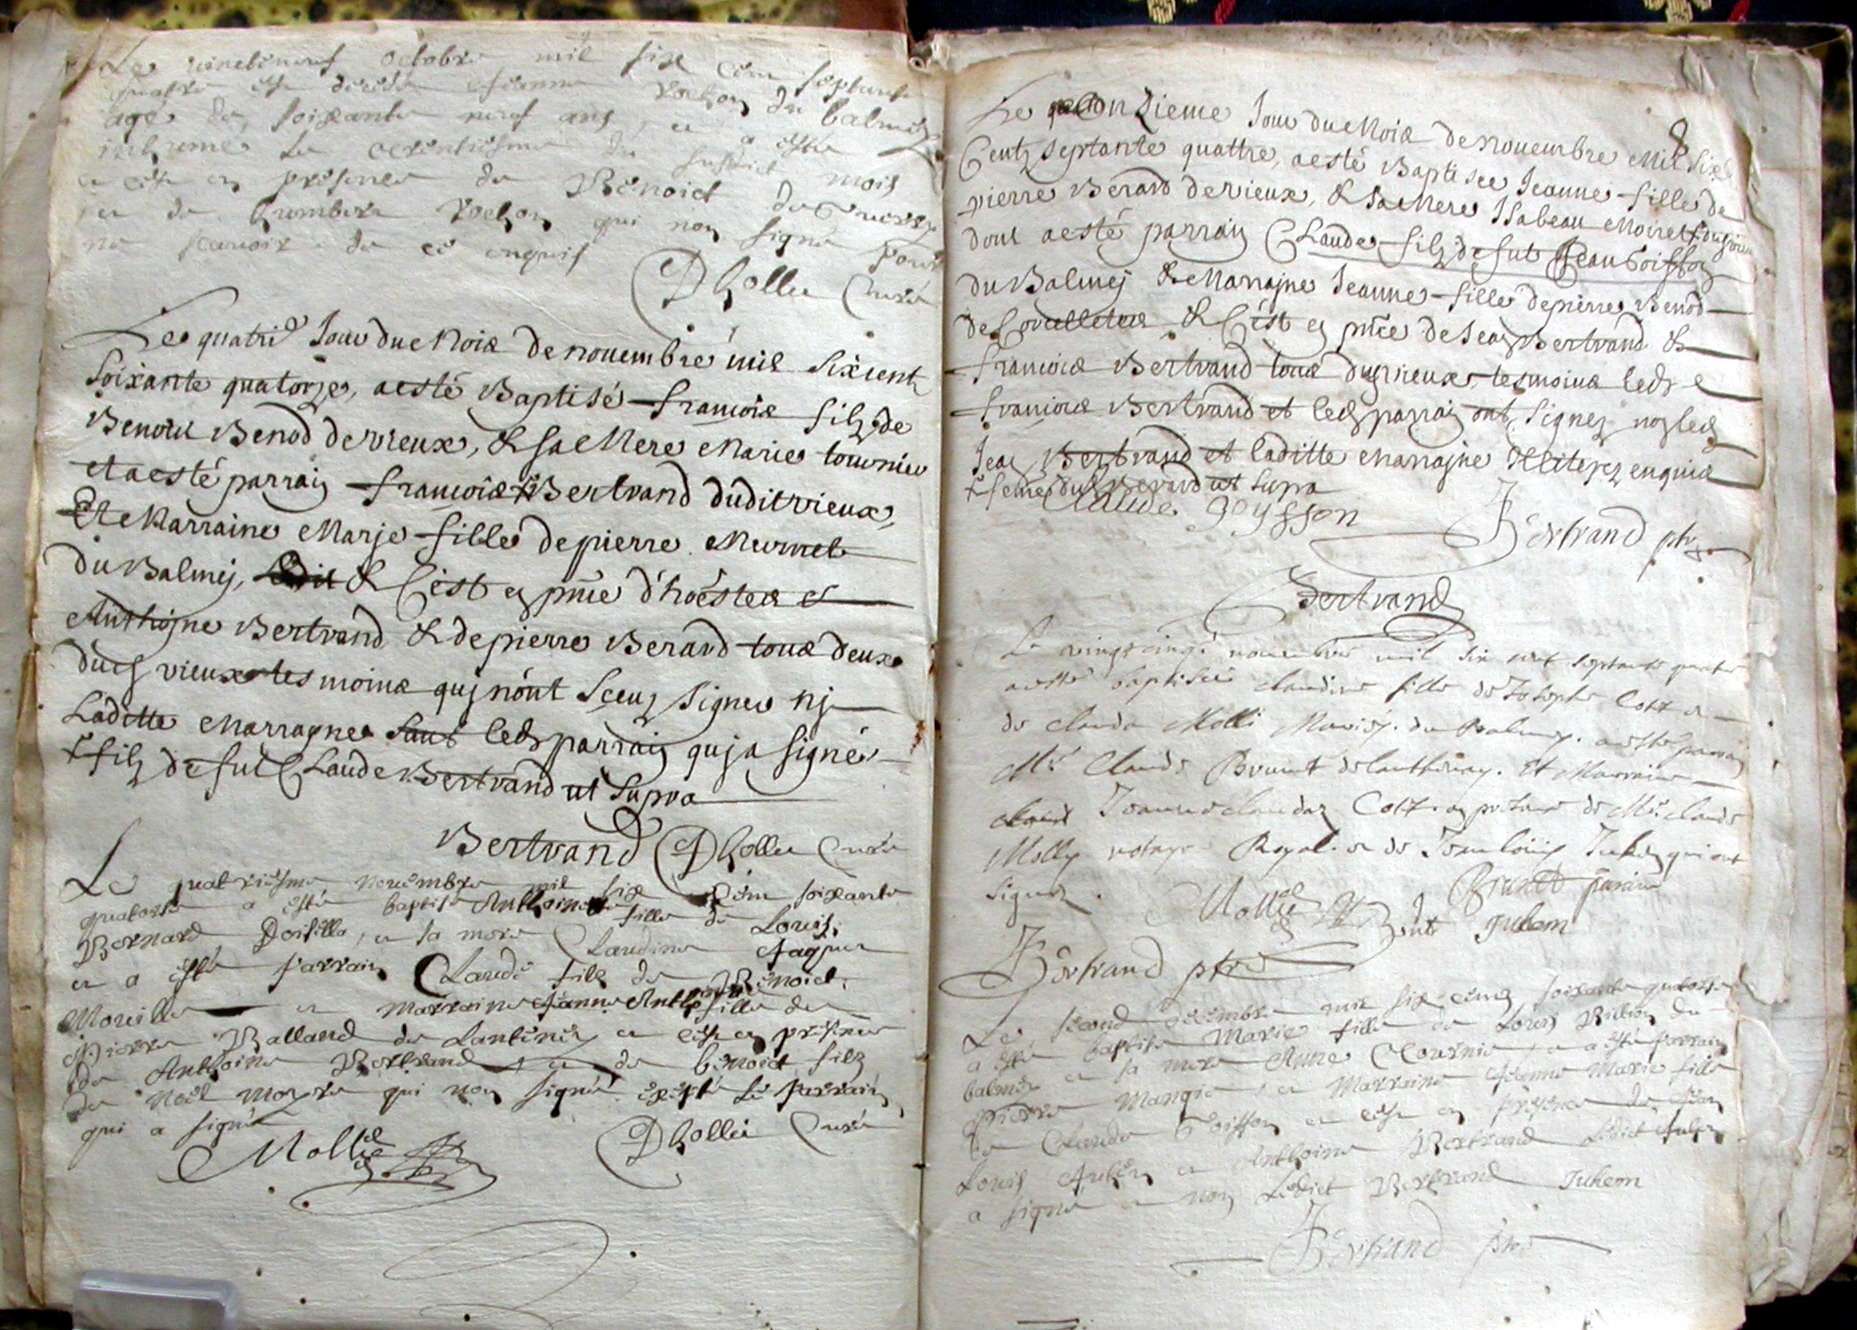 Le vineteneuf octobre mil six cens septante
quatre est decedé Jeanne rochon du balmey
agé de soixante neuf ans, et a esté
inhumé le trentiesme du susdict mois
et cest en presence de Benoict
et de humbert rochon qui non signé pour
ne scauoir de ce enquis
Dhollie Curé
Le quatrie Jour du Moix de nouembre mil Sixcent
Soixante quatorze, a esté Baptisé francoix filz de
Benoict Benod de vieux, & sa Mere Marie tournier
et a esté parrain francoix + Bertrand dudit vieux,
Et Marraine Marje fille de pierre Murnet
du Balmej, & C'est en pnce d'hoestex et
Anthojne Bertrand & de pierre Berard toux deux
dud vieux tesmoinx quj n'ont sceuz signer nj
Laditte Marrayne sauf led parrain quj a signé
+ filz de fut Claude Bertrand ut supra
Bertrand Dhollie Curé
Le quatriesme nouembre mil six Cens soixante
quatorse a esté baptisé Anthoinette fille de Louis
Bernard Doisella, et sa mere Claudine Jaquier
et a esté Parrain Claude filz de Benoict
Moeille et Marraine Jeanne Anthoinette fille de
Pierre Balland de Lantenéy et cest en presence
de Anthoine Bertrand et de benoict filz
de noël moyre qui non signé exepté le parrain
qui a signé
Mollie Dhollie Curé
8
Le onzieme Jour du Moix de nouembre Mil Six
Centz septante quattre, a esté Baptisee Jeanne fille de
pierre Berard de vieux, & sa Mere Isabeau Moiret +
dont a esté parrain Claude filz de fut Jean Goiffon
du Balmej & Marrajne Jeanne fille de pierre Benod
de Corcelletex & C'est en pnce de Jean Bertrand &
francoix Bertrand toux dud vieux tesmoinx led
francoix Bertrand et led parrain ont signez non led
Jean Bertrand et laditte Marrajne Illiterez enquix
+ femme dud Berard ut supra
Claude goyffon
Bertrand ptre
Bertrand
Le vingt cinq nouembre mil six cent septante quatre
a esté baptisée claudine fille de Joseph Cott et
de clauda Molli Mariez du Balmey a esté parrain
Mre Claude Brunet de lanthenay. Et Marraine
Jeanne claudaz Cott en presence de Mre claude
Molly notayre Royal et de Jean louis Juhen qui ont
signez.
Mollie Brunet parain
Juhem
Bertrand ptre
Le second decembre mil six cens soixante quatorse
a esté baptisé Marie fille de Louis Billion du
balméy et sa mere Anne Tournier et a esté parrain
Pierre Mangie et Marraine Jeanne Marie fille
de Claude Goiffon et cest en presence de Jean
Louis Juhen et Anthoine Bertrand Ledict Juhen
a signé et non Ledict Bertrand Juhem
Bertrand ptre